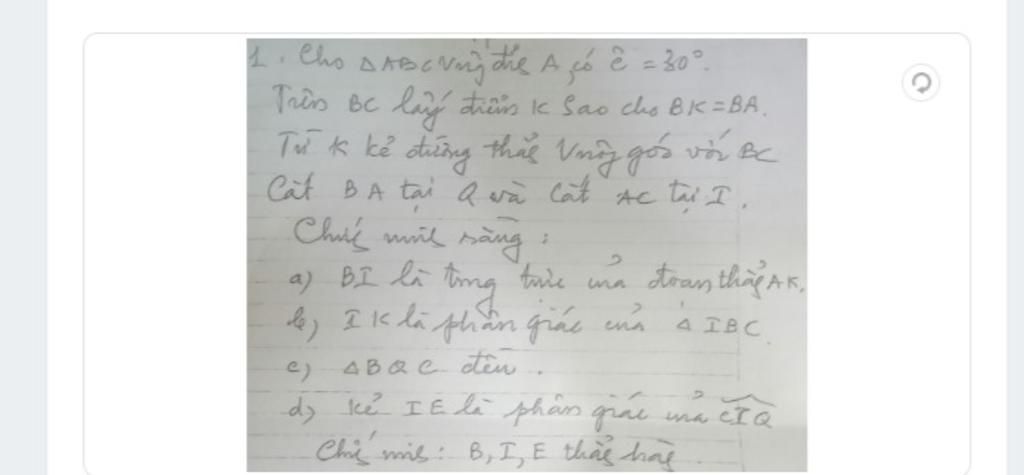 1. Cho ΔABC vuông tại A, có Ĉ = 30°.
Trên BC lấy điểm K sao cho BK = BA.
Từ K kẻ đường thẳng vuông góc với BC
Cắt BA tại Q và cắt AC tại I.
Chứng minh rằng :
a) BI là trung trực của đoạn thẳng AK.
b) IK là phân giác của Δ IBC.
c) ΔBQC đều.
d) Kẻ IE là phân giác của CIQ
Chứng minh: B, I, E thẳng hàng.